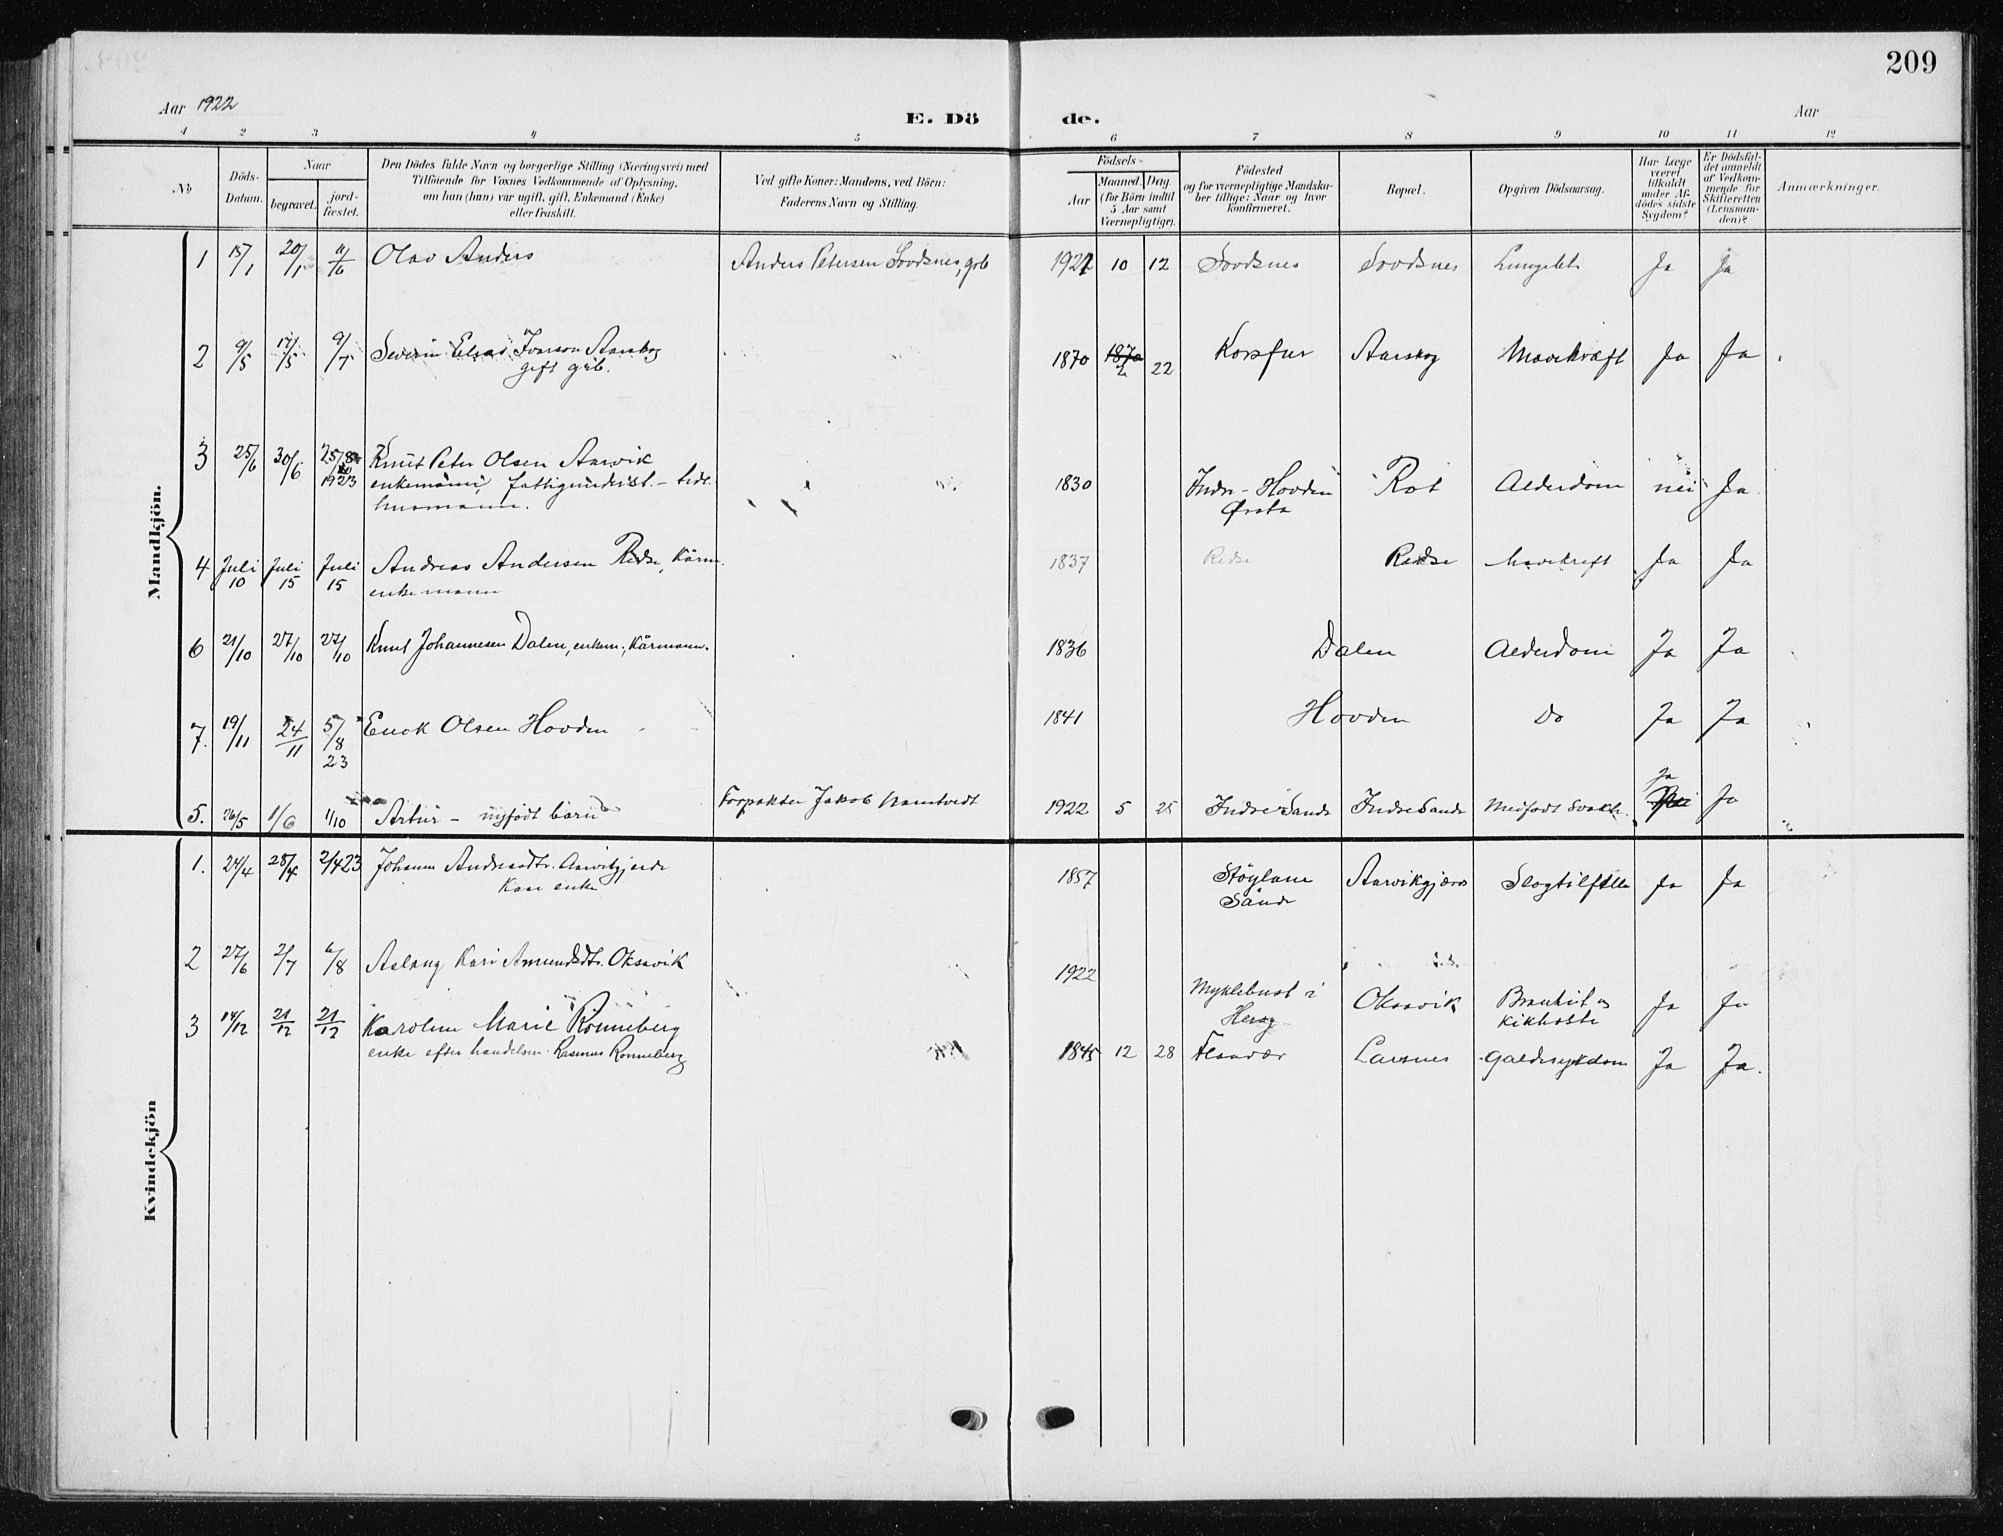 209
Aar 1922
E. Dö
de.
Aar
1 2 3 4 5 6 7 8 9 10 11 12
No
Döds-Datum.
Naar
begravet.
jord-fæstet.
Den Dödes fulde Navn og borgerlige Stilling (Næringsvei) med
Tilföiende for Voxnes Vedkommende af Oplysning,
om han (hun) var ugift, gift, Enkemand (Enke)
eller fraskilt.
Ved gifte Koner: Mandens, ved Börn:
Faderens Navn og Stilling.
Födsels-
Aar
Maaned. Dag.
(for Börn indtil
5 Aar samt
Værnepligtige).
Födested
og for værnepligtige Mandska-
ber tillige: Naar og hvor
konfirmeret.
Bopæl.
Opgiven Dödsaarsag.
Har Læge
været
tilkaldt
under Af-
dödes sidste
Sygdom?
Er Dödsfal-
det anmeldt
af Vedkom-
mende for
Skifteretten
(Lensman-
den)?
Anmærkninger.
Mandkjön.
1 15/1 20/1 11/6 Olav Anders Anders Petersen Sovdsnes, grb 1921 10 12 Sovdsnes Sovdsnes Ja Ja
2 9/5 17/5 9/7 Severin Elias Ivarson Aarskog 1870 1870 2 22 Korsfur Aarskog Mavekræft Ja Ja
gift grb.
3 25/6 30/6 25/8 1923 Knut Peter Olsen Aarvik 1830 Indre-Hovden Rot Alderdom nei Ja
enkemann, fattigunderst. - tidl. Ørsta
husmann.
4 Juli 10 Juli 15 Juli 15 Andreas Andersen Redse, kårm. 1837 Redse Redse Mavekreft Ja Ja
enkemann
6 21/10 27/10 27/10 Knut Johannesen Dalen, enkem., Kårmann. 1836 Dalen Alderdom Ja Ja
7. 19/11 24/11 5/8 23 Enok Olsen Hovden 1841 Hovden Do Ja Ja
5. 26/5 1/6 1/10 Artur - nyfödt barn Forpakter Jakob 1922 5 25 Indre Sande Indre Sande Medfödt Svakh. Ja Ja
Kvindekjön
1. 24/4 28/4 2/4 23 Johanne Aarvikgjerde 1857 Støylane Aarvikgjærde Slagtilfelle Ja Ja
Kaar enke Sande
2 27/6 2/7 6/8 Aslaug Kari Amundsdtr. Oksavik 1922 Myklebust i Oksavik Bronkit og Ja Ja
Herøy kikhoste
3 14/12 21/12 21/12 Karoline Marie Rönneberg 1845 12 28 Flaavær Larsnes Galdesykdom Ja Ja.
enke efter handelsm. Rasmus Rönneberg